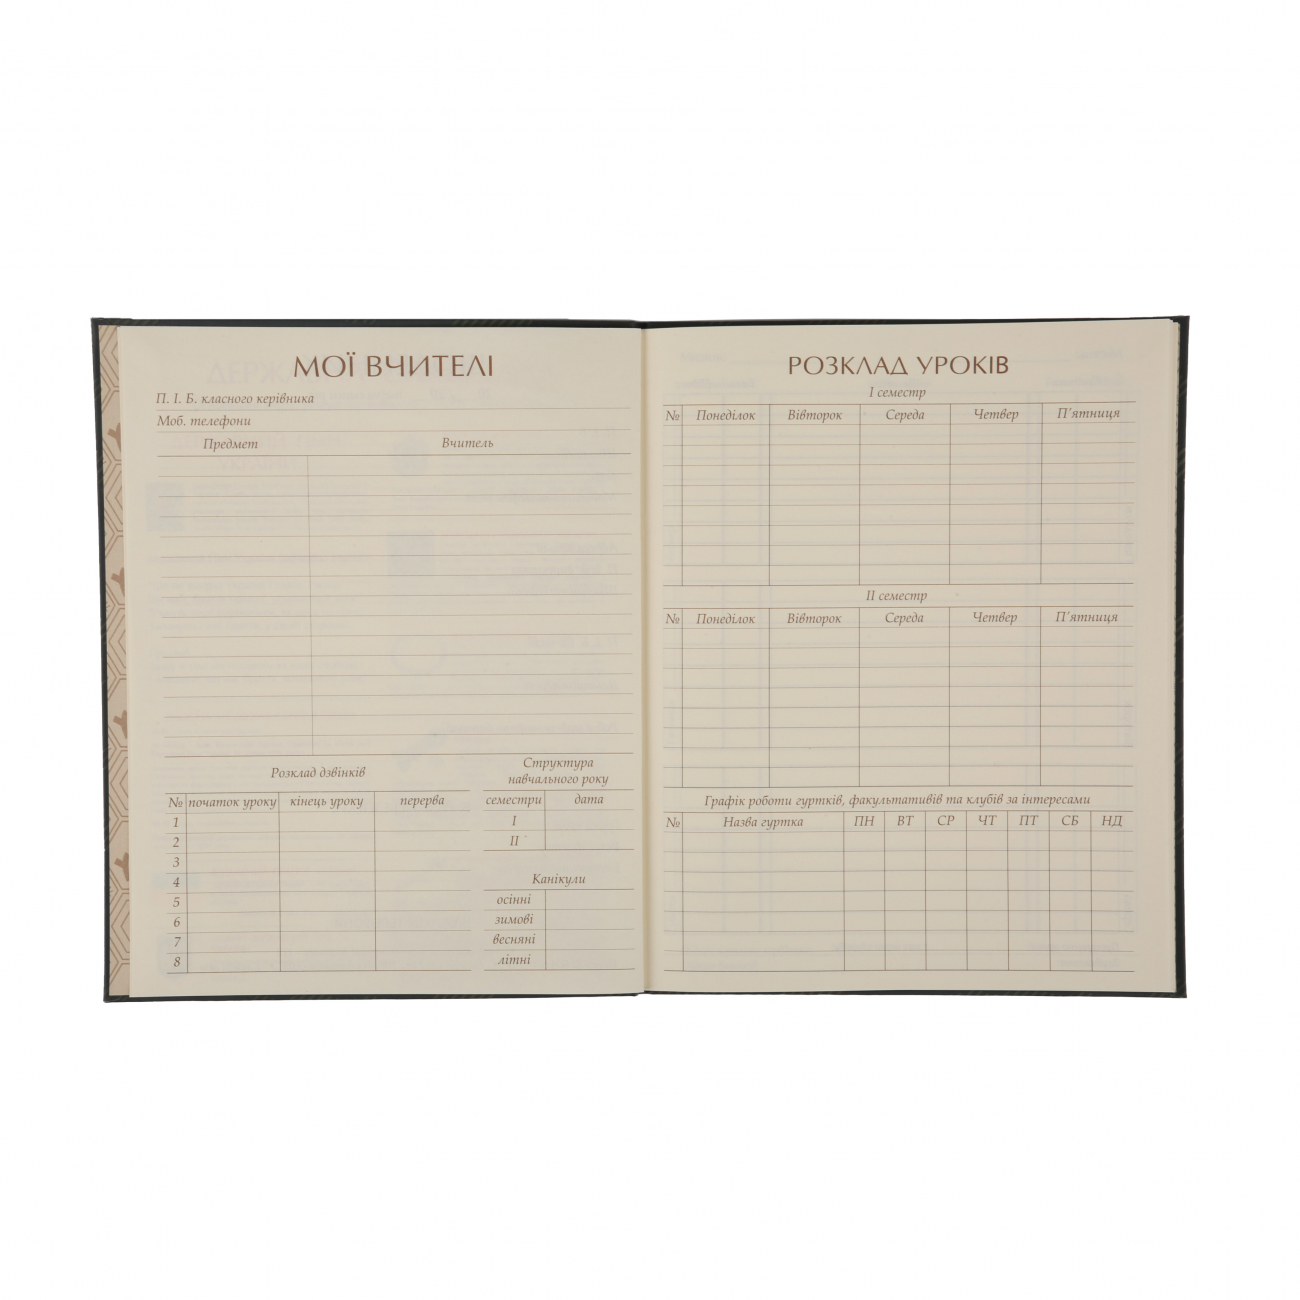 МОЇ ВЧИТЕЛІ
П. І. Б. класного керівника
Моб. телефони
Предмет Вчитель
Розклад дзвінків
№ початок уроку кінець уроку перерва
1
2
3
4
5
6
7
8
Структура
навчального року
семестри дата
I
II
Канікули
осінні
зимові
весняні
літні
РОЗКЛАД УРОКІВ
I семестр
№ Понеділок Вівторок Середа Четвер П'ятниця
II семестр
№ Понеділок Вівторок Середа Четвер П'ятниця
Графік роботи гуртків, факультативів та клубів за інтересами
№ Назва гуртка ПН ВТ СР ЧТ ПТ СБ НД